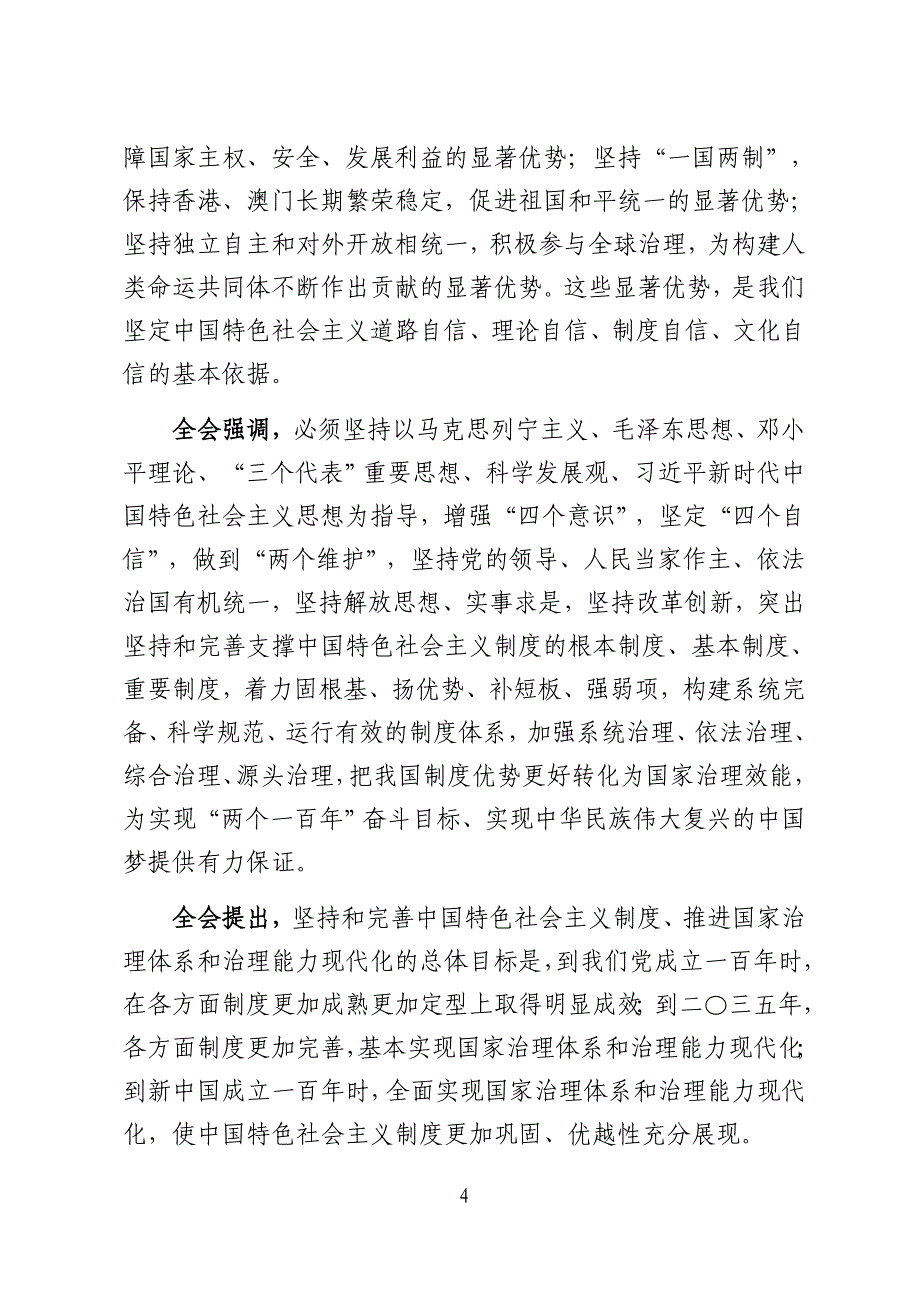 障国家主权、安全、发展利益的显著优势；坚持“一国两制”，
保持香港、澳门长期繁荣稳定，促进祖国和平统一的显著优势；
坚持独立自主和对外开放相统一，积极参与全球治理，为构建人
类命运共同体不断作出贡献的显著优势。这些显著优势，是我们
坚定中国特色社会主义道路自信、理论自信、制度自信、文化自
信的基本依据。
全会强调，必须坚持以马克思列宁主义、毛泽东思想、邓小
平理论、“三个代表”重要思想、科学发展观、习近平新时代中
国特色社会主义思想为指导，增强“四个意识”，坚定“四个自
信”，做到“两个维护”，坚持党的领导、人民当家作主、依法
治国有机统一，坚持解放思想、实事求是，坚持改革创新，突出
坚持和完善支撑中国特色社会主义制度的根本制度、基本制度、
重要制度，着力固根基、扬优势、补短板、强弱项，构建系统完
备、科学规范、运行有效的制度体系，加强系统治理、依法治理、
综合治理、源头治理，把我国制度优势更好转化为国家治理效能，
为实现“两个一百年”奋斗目标、实现中华民族伟大复兴的中国
梦提供有力保证。
全会提出，坚持和完善中国特色社会主义制度、推进国家治
理体系和治理能力现代化的总体目标是，到我们党成立一百年时，
在各方面制度更加成熟更加定型上取得明显成效；到二〇三五年，
各方面制度更加完善，基本实现国家治理体系和治理能力现代化；
到新中国成立一百年时，全面实现国家治理体系和治理能力现代
化，使中国特色社会主义制度更加巩固、优越性充分展现。
4